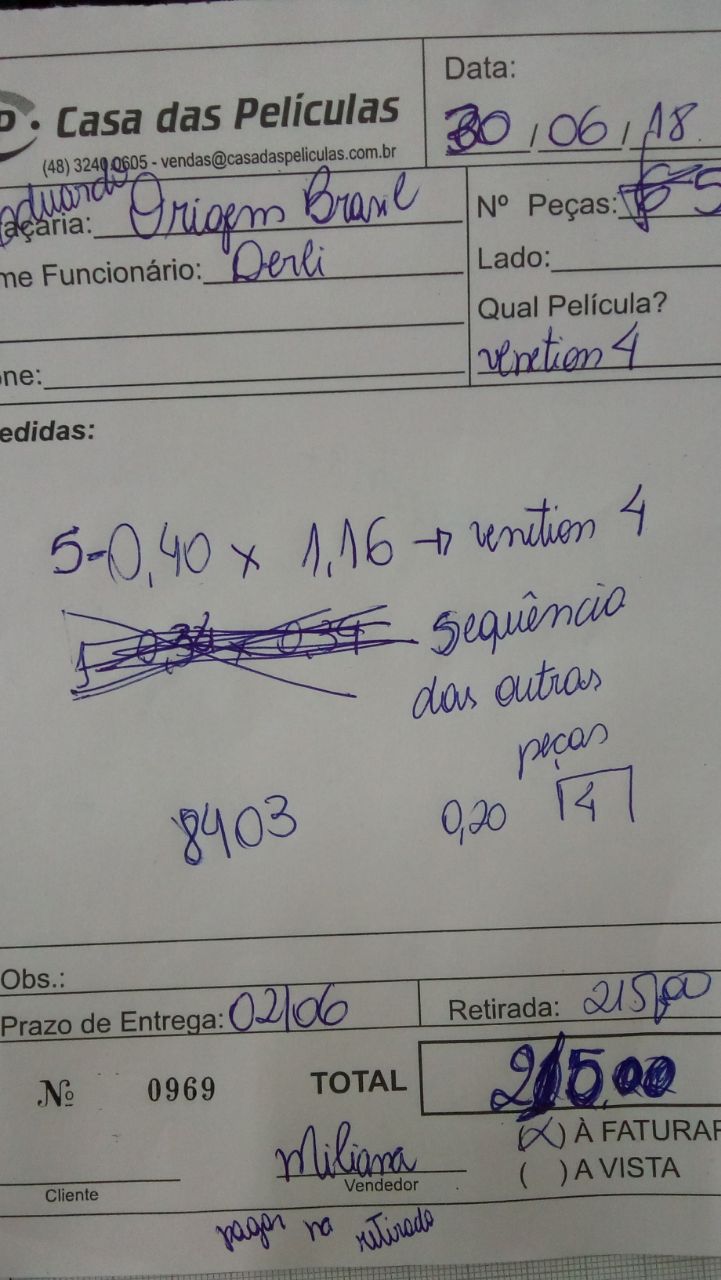 P. Casa das Películas
(48) 3240 0605 - vendas@casadaspeliculas.com.br
Data:
30/06/18
eduardo
açaria: Origem Brasil
Nº Peças: 5
me Funcionário: Derli
Lado:
Qual Película?
venetion 4
one:
edidas:
5-0,40 x 1,16 → venetion 4
1 0,34 x 0,34
sequência
das outras
peças
8403
0,20 4
Obs.:
Prazo de Entrega: 02/06
Retirada: 215,00
Nº 0969
TOTAL 215,00
(X) À FATURAR
( ) A VISTA
Miliana
Cliente
Vendedor
pagar na retirada